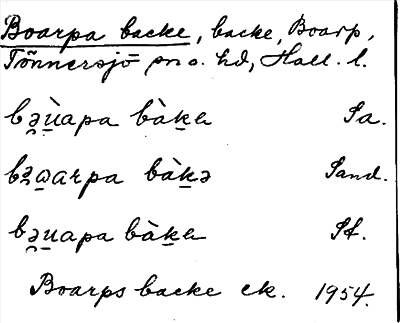 Boarpa backe, backe, Boarp,
Tönnersjö sn o. hd, Hall. l.
bə̯ùapa bàḵə Sa.
bə̯ɷarpa bàḵə Sand.
bə̯uapa bàḵə Sf.
Boarps backe ek. 1954.